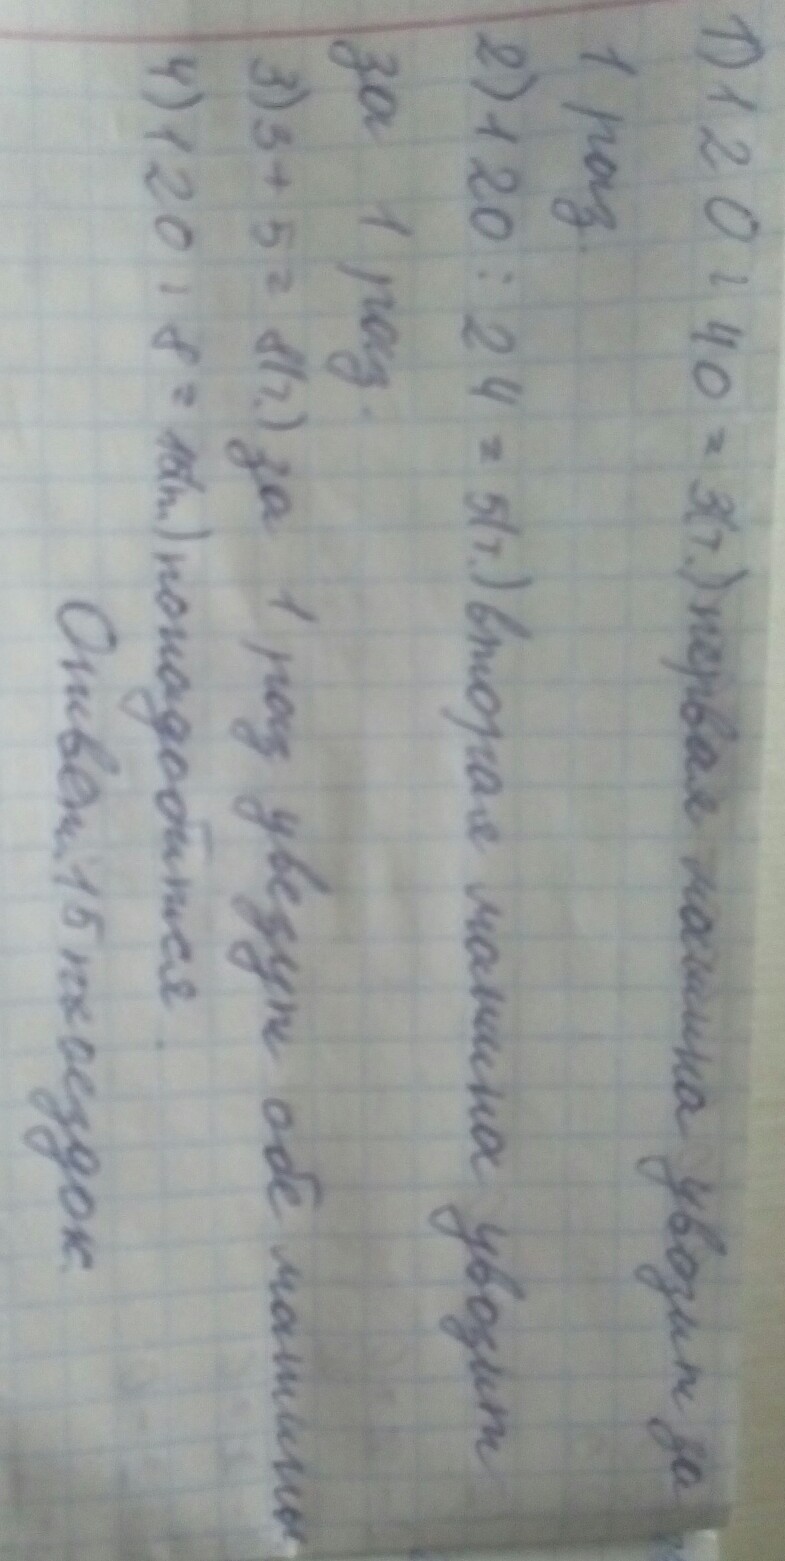 1) 120 : 40 = 3(т.) первая машина увозит за
1 раз.
2) 120 : 24 = 5(т.) вторая машина увозит
за 1 раз.
3) 3 + 5 = 8(т.) за 1 раз увезут обе машины
4) 120 : 8 = 15(п.) понадобится
Ответ: 15 поездок.